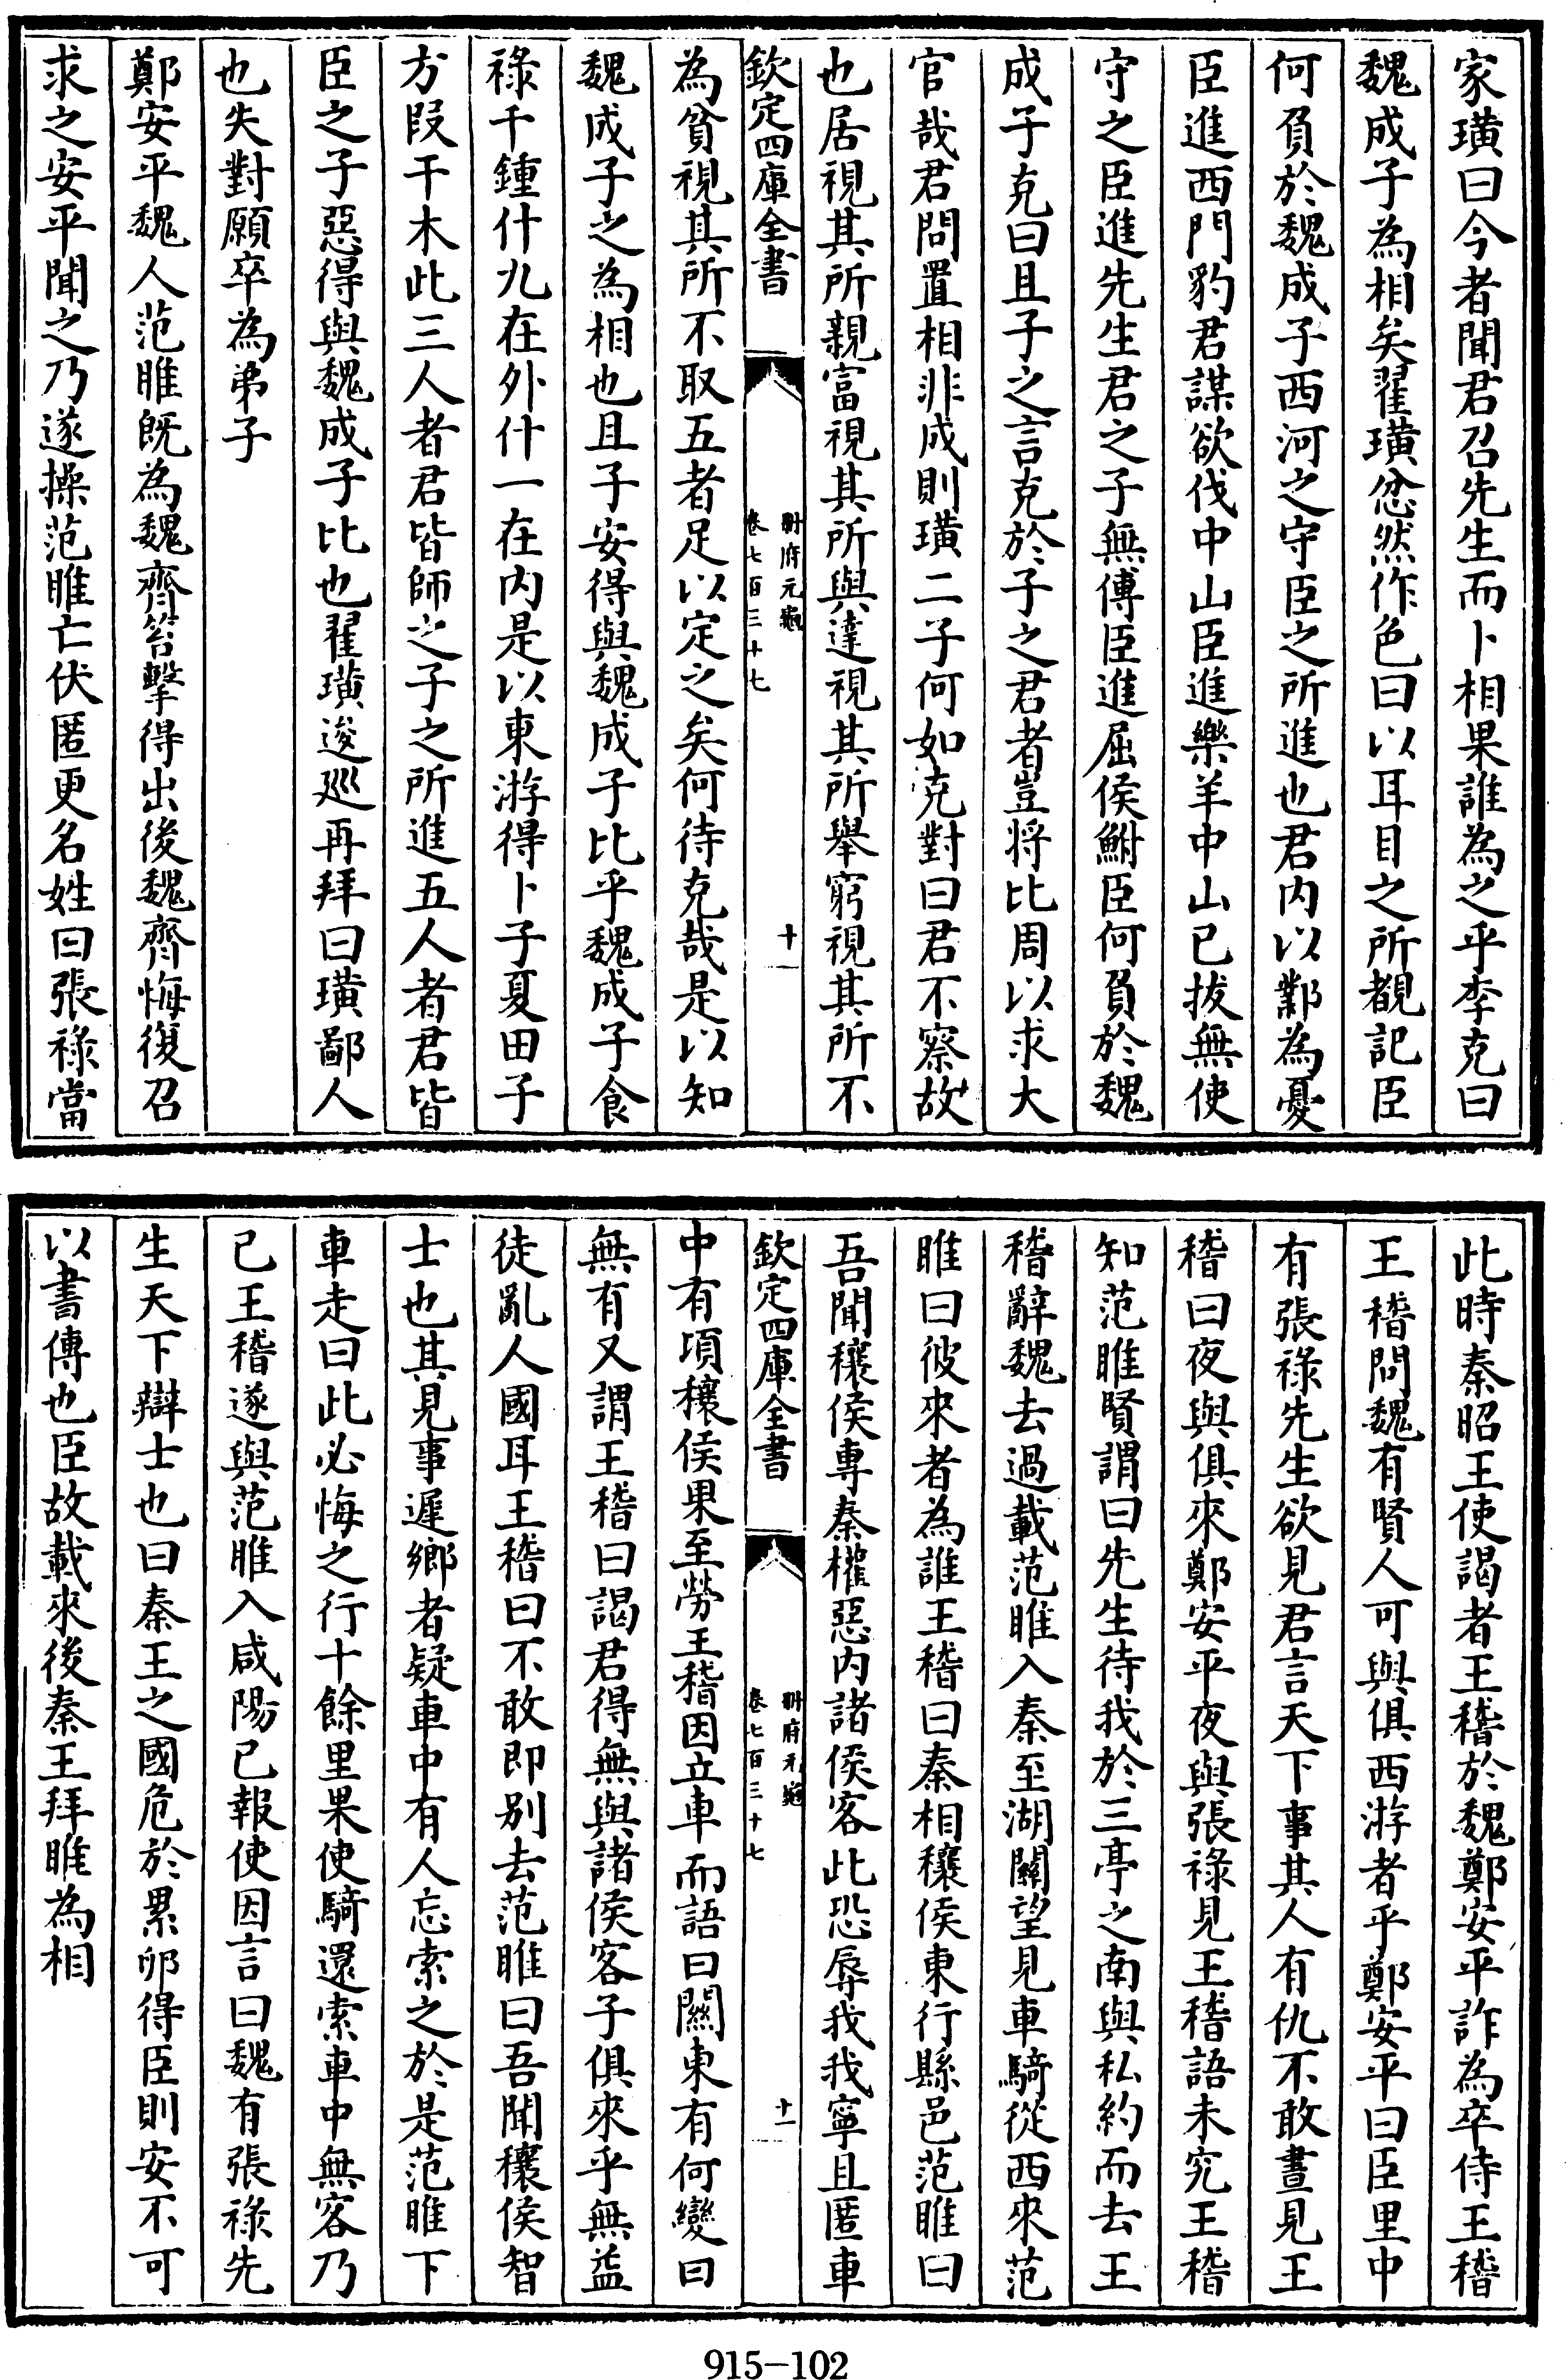 家璜曰今者聞君召先生而卜相果誰為之乎李克曰
魏成子為相矣翟璜忿然作色曰以耳目之所覩記臣
何負於魏成子西河之守臣之所進也君内以鄴為憂
臣進西門豹君謀欲伐中山臣進樂羊中山已拔無使
守之臣進先生君之子無傅臣進屈侯鮒臣何負於魏
成子克曰且子之言克於子之君者豈将比周以求大
官哉君問置相非成則璜二子何如克對曰君不察故
也居視其所親富視其所與達視其所舉窮視其所不
欽定四庫全書
冊府元龜
卷七百三十七
十
為貧視其所不取五者足以定之矣何待克哉是以知
魏成子之為相也且子安得與魏成子比乎魏成子食
祿千鍾什九在外什一在内是以東游得卜子夏田子
方段干木此三人者君皆師之子之所進五人者君皆
臣之子惡得與魏成子比也翟璜逡巡再拜曰璜鄙人
也失對願卒為弟子
鄭安平魏人范睢既為魏齊笞擊得出後魏齊悔復召
求之安平聞之乃遂操范睢亡伏匿更名姓曰張祿當
此時秦昭王使謁者王稽於魏鄭安平詐為卒侍王稽
王稽問魏有賢人可與俱西游者乎鄭安平曰臣里中
有張祿先生欲見君言天下事其人有仇不敢晝見王
稽曰夜與俱來鄭安平夜與張祿見王稽語未究王稽
知范睢賢謂曰先生待我於三亭之南與私約而去王
稽辭魏去過載范睢入秦至湖關望見車騎從西來范
睢曰彼來者為誰王稽曰秦相穰侯東行縣邑范睢曰
吾聞穰侯專秦權惡内諸侯客此恐辱我我寧且匿車
欽定四庫全書
冊府元龜
卷七百三十七
十一
中有頃穰侯果至勞王稽因立車而語曰關東有何變曰
無有又謂王稽曰謁君得無與諸侯客子俱來乎無益
徒亂人國耳王稽曰不敢即别去范睢曰吾聞穰侯智
士也其見事遲鄉者疑車中有人忘索之於是范睢下
車走曰此必悔之行十餘里果使騎還索車中無客乃
已王稽遂與范睢入咸陽已報使因言曰魏有張祿先
生天下辯士也曰秦王之國危於累卵得臣則安不可
以書傳也臣故載來後秦王拜睢為相
915-102